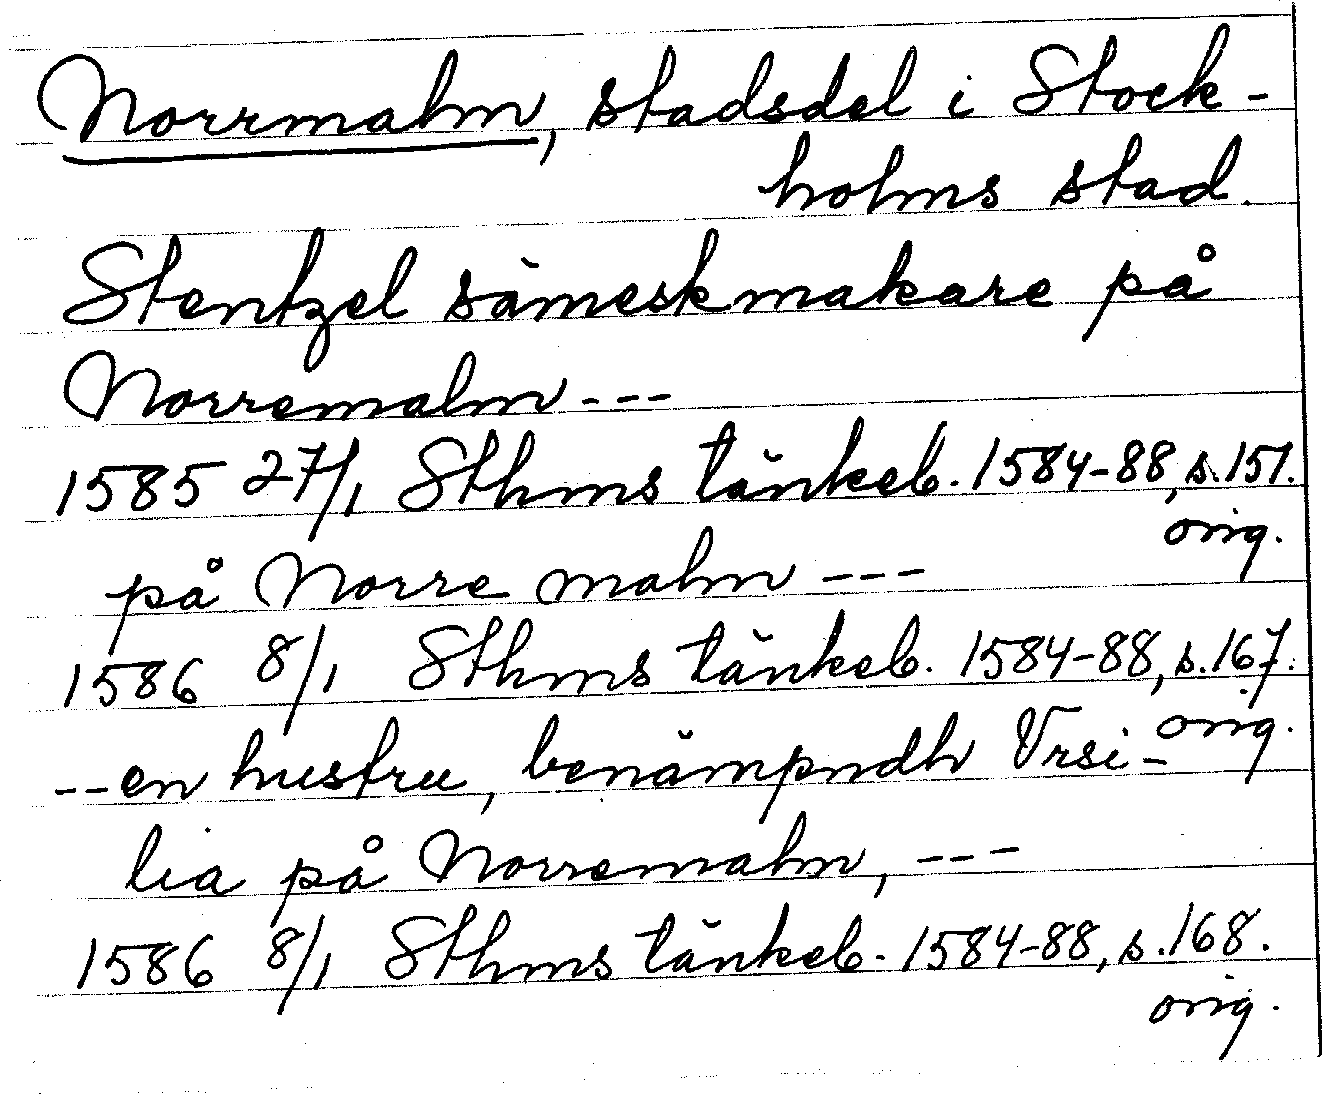 Norrmalm, stadsdel i Stock-
holms stad.
Stentzel sämeskmakare på
Norremalm ---
1585 27/1 Sthms tänkeb. 1584-88, s. 151.
orig.
på Norre malm ---
1586 8/1 Sthms tänkeb. 1584-88, s. 167.
orig.
--en hustru, benämpndh Vrsi-
lia på Norremalm, ---
1586 8/1 Sthms tänkeb. 1584-88, s. 168.
orig.